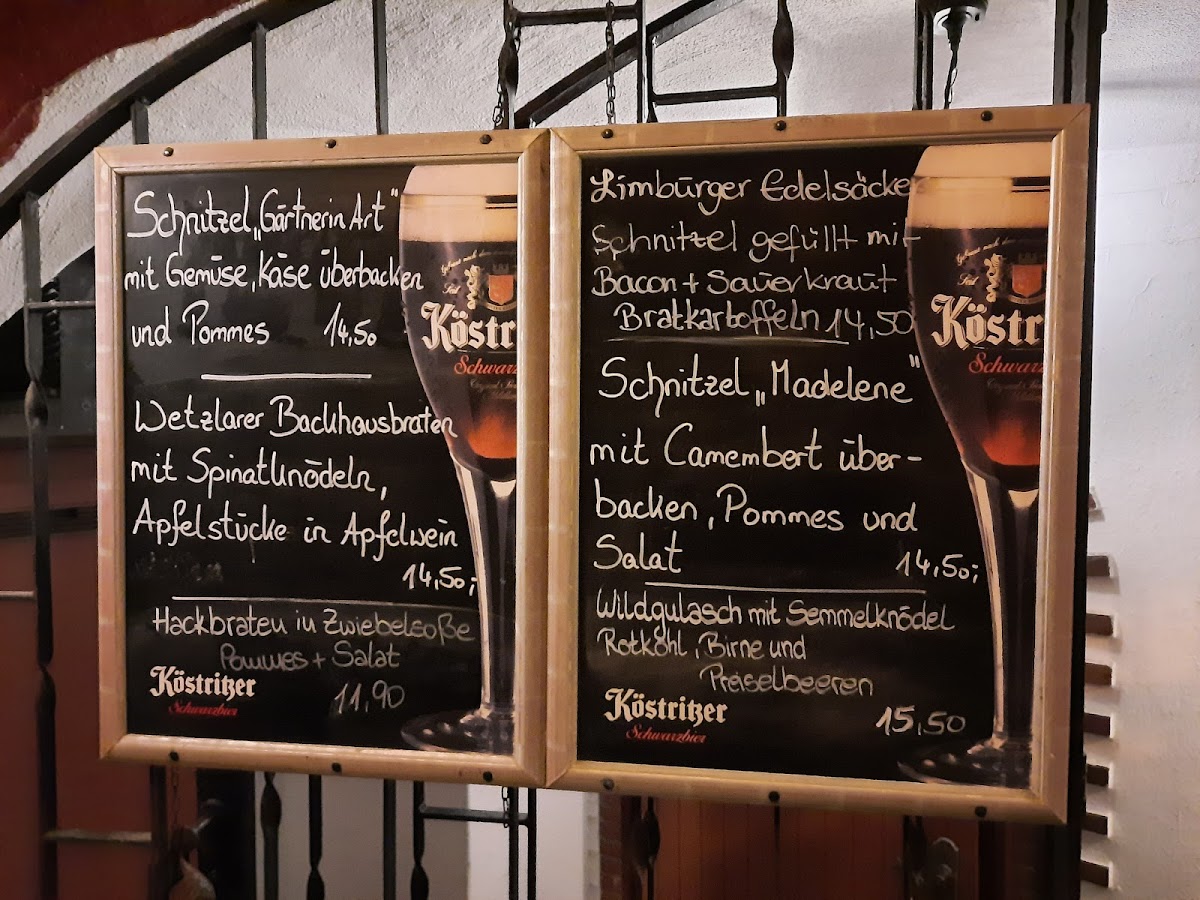 Schnitzel „Gärtnerin Art"
mit Gemüse, Käse überbacken
und Pommes 14,50
Wetzlarer Backhausbraten
mit Spinatknödeln,
Apfelstücke in Apfelwein
14,50,-
Hackbraten in Zwiebelsoße
Pommes + Salat
11,90
Köstritzer
Schwarzbier
Köstr
Schwarz
Limburger Edelsäcker
Schnitzel gefüllt mit
Bacon + Sauerkraut
Bratkartoffeln 14,50
Schnitzel „Madelene"
mit Camembert über-
backen, Pommes und
Salat 14,50,-
Wildgulasch mit Semmelknödel
Rotkohl, Birne und
Preiselbeeren
15,50
Köstritzer
Schwarzbier
Köstr
Schwarz